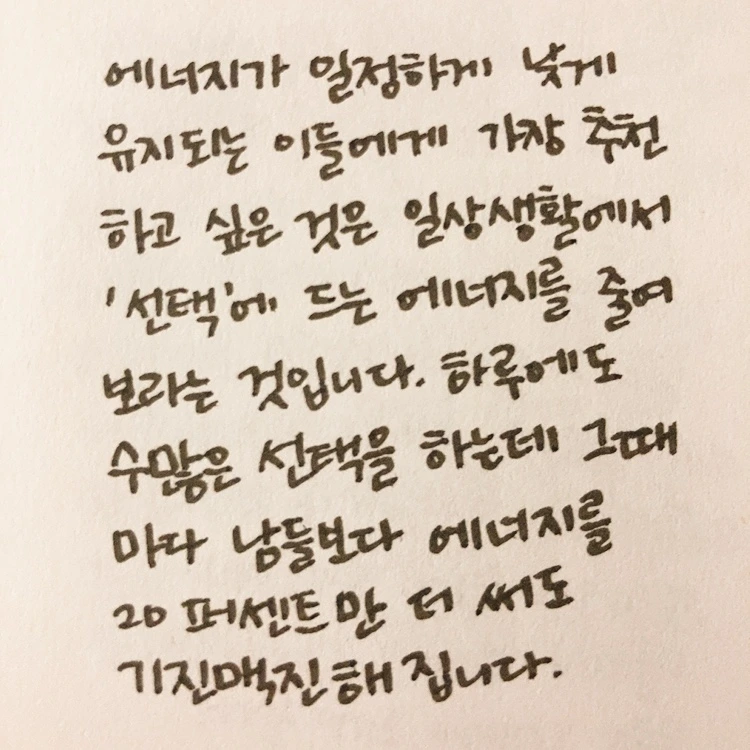 에너지가 일정하게 낮게
유지되는 이들에게 가장 추천
하고 싶은 것은 일상생활에서
'선택'에 드는 에너지를 줄여
보라는 것입니다. 하루에도
수많은 선택을 하는데 그때
마다 남들보다 에너지를
20 퍼센트만 더 써도
기진맥진해집니다.